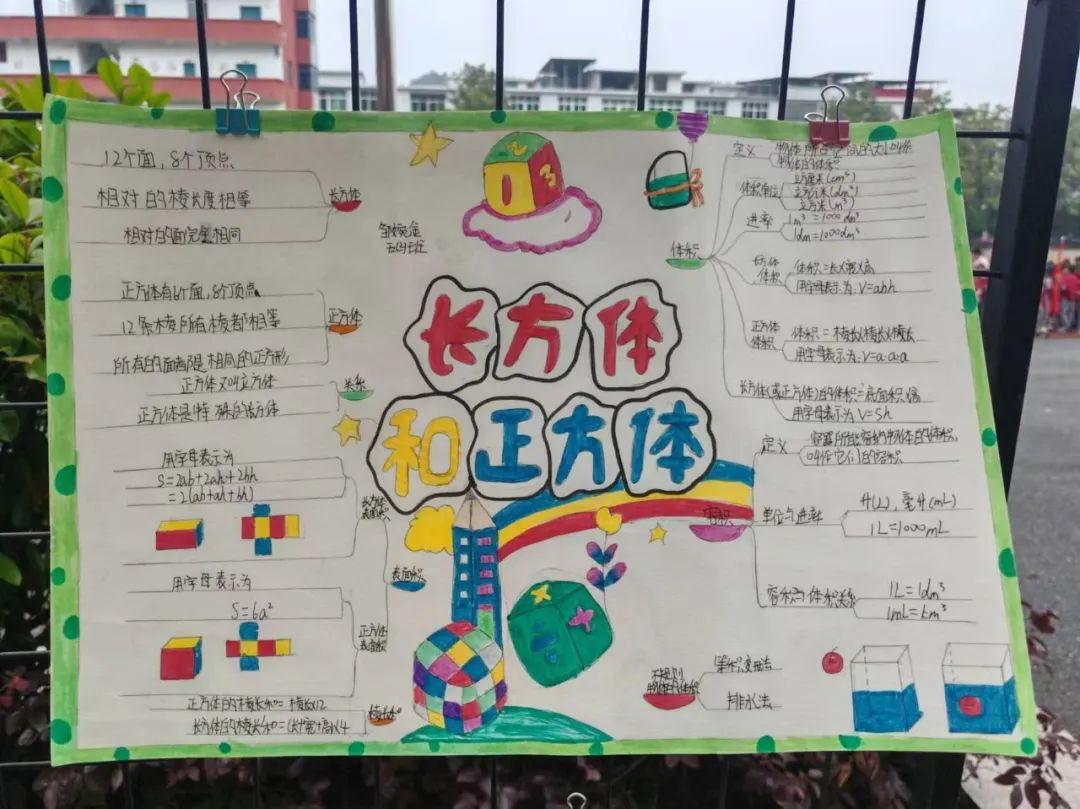 12个面,8个顶点
相对的棱长度相等
相对的面完全相同
长方体
正方体有6个面,8个顶点
12条棱所有棱都相等
所有的面都是相同的正方形
正方体
正方体又叫立方体
正方体是特殊的长方体
关系
用字母表示为
S=2ab+2ah+2bh
=2(ab+ah+bh)
长方体
表面积
用字母表示为
S=6a²
正方体
表面积
表面积
正方体的棱长和=棱长x12
长方体的棱长和=(长+宽+高)x4
棱长和
五(4)班
2
0
3
长方体
和正方体
体积
定义
物体所占空间的大小叫做
物体的体积
体积单位
立方厘米(cm³)
立方分米(dm³)
立方米(m³)
进率
1m³=1000dm³
1dm=1000dm³
长方体
体积
体积=长x宽x高
用字母表示为:V=abh
正方体
体积
体积=棱长x棱长x棱长
用字母表示为:V=a·a·a
长方体(或正方体)的体积=底面积x高
用字母表示为V=Sh
容积
定义
容器所能容纳物体的体积,
叫作它们的容积
单位与进率
升(L),毫升(mL)
1L=1000mL
容积与体积关系
1L=1dm³
不规则
物体的体积
等积变形法
排水法